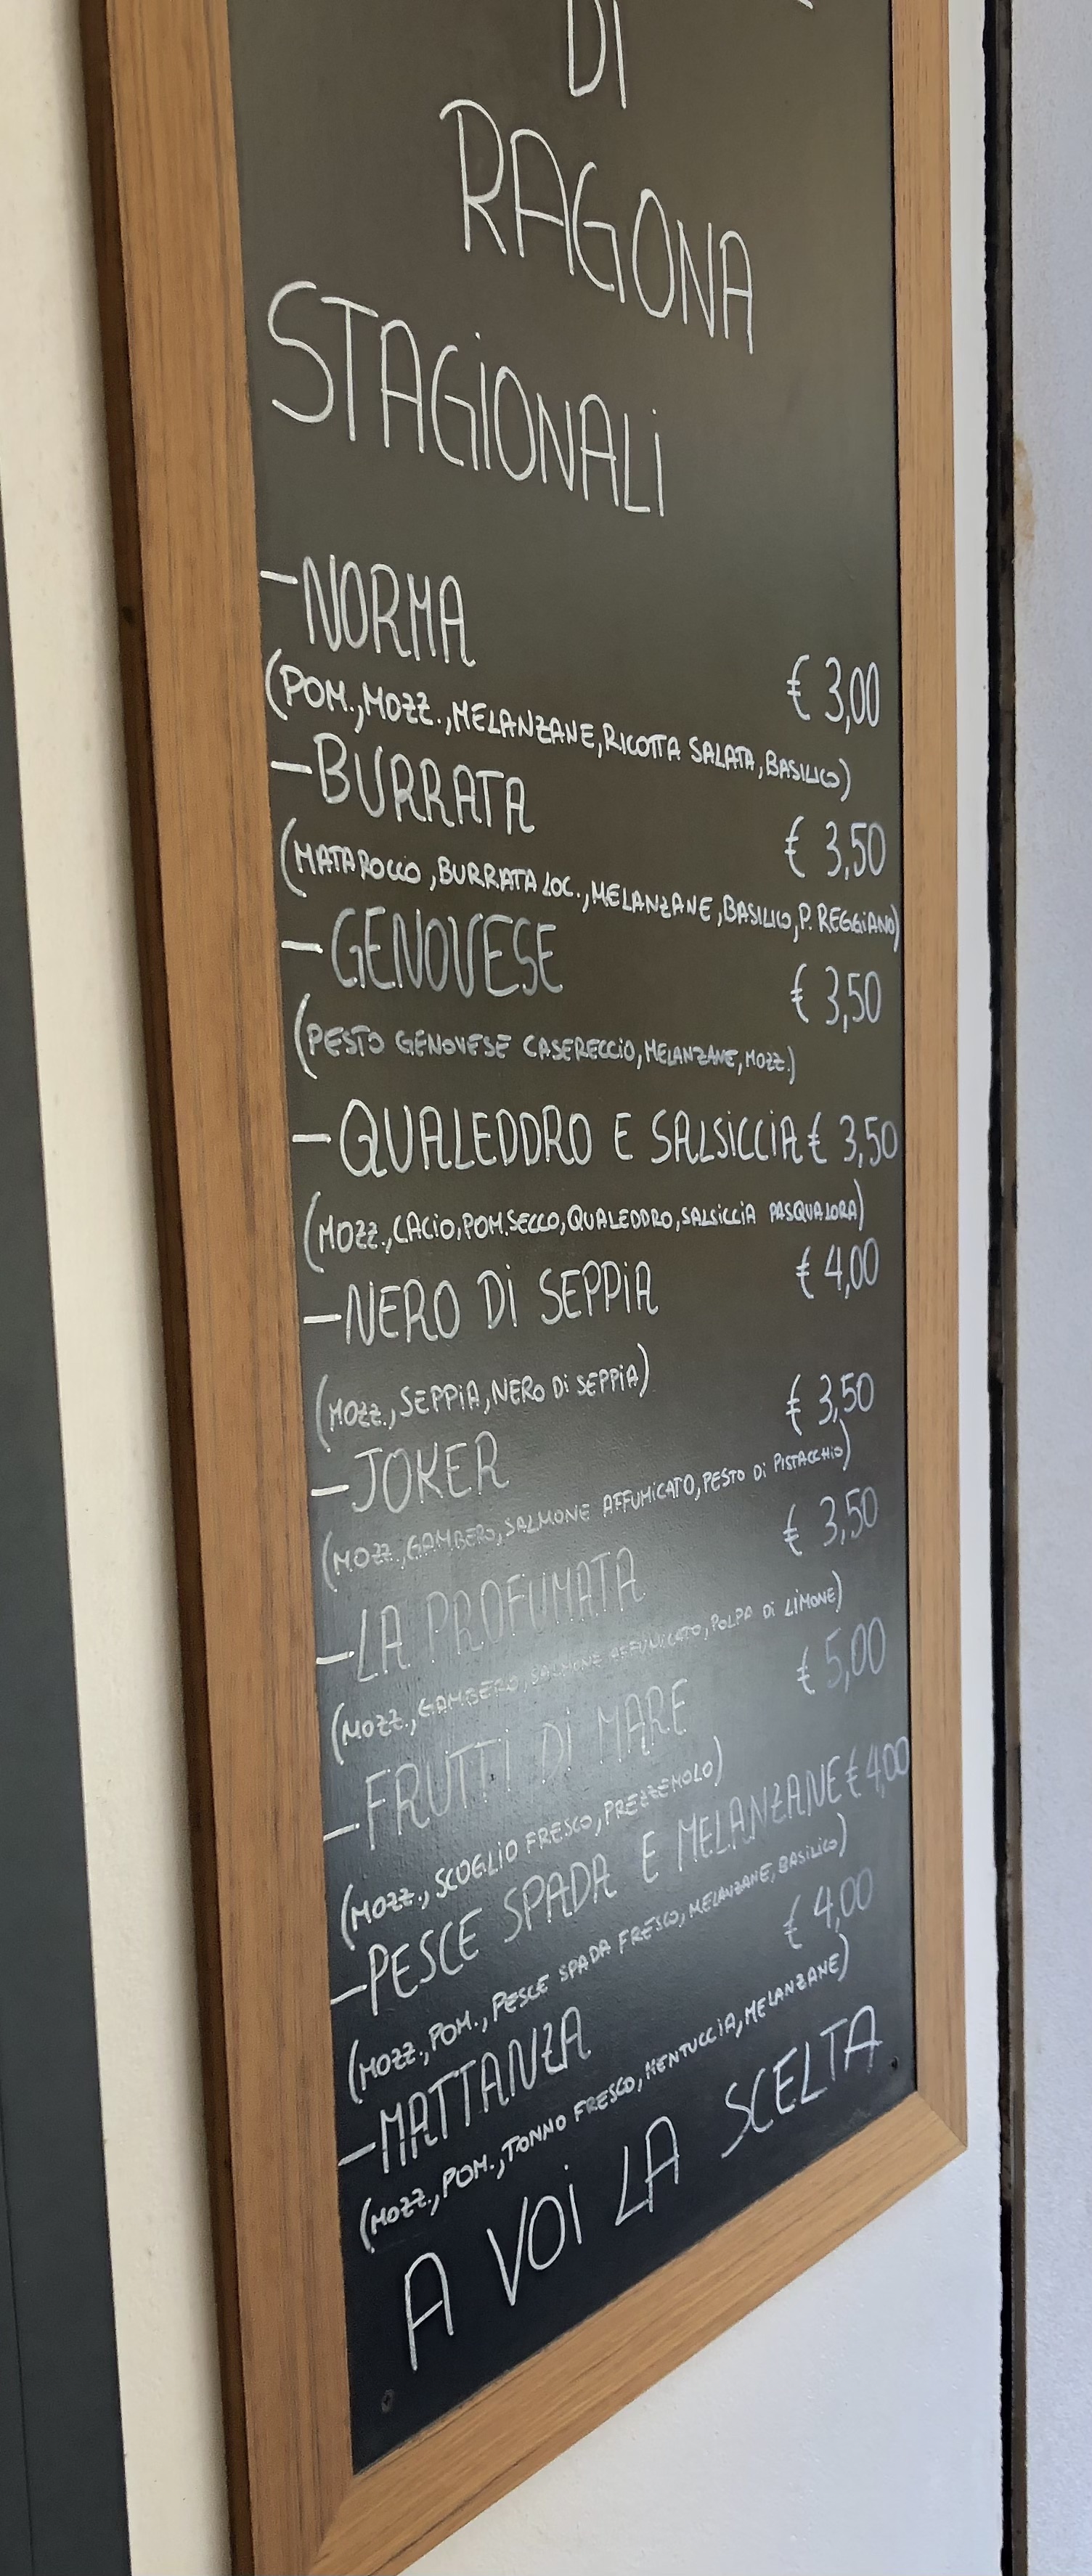 DI
RAGONA
STAGIONALI
-NORMA € 3,00
(POM.,MOZZ.,MELANZANE,RICOTTA SALATA,BASILICO)
-BURRATA € 3,50
(MATAROCCO,BURRATA LOC.,MELANZANE,BASILICO,P. REGGIANO)
-GENOVESE € 3,50
(PESTO GENOVESE CASERECCIO,MELANZANE,MOZZ.)
-QUALEDDRO E SALSICCIA € 3,50
(MOZZ.,CACIO,POM.SECCO,QUALEDDRO,SALSICCIA PASQUALORA)
-NERO DI SEPPIA € 4,00
(MOZZ.,SEPPIA,NERO DI SEPPIA)
-JOKER € 3,50
(MOZZ.,GAMBERO,SALMONE AFFUMICATO,PESTO DI PISTACCHIO)
-LA PROFUMATA € 3,50
(MOZZ.,GAMBERO,SALMONE AFFUMICATO,POLPA DI LIMONE)
-FRUTTI DI MARE € 5,00
(MOZZ.,SCOGLIO FRESCO,PREZZEMOLO)
-PESCE SPADA E MELANZANE € 4,00
(MOZZ.,POM.,PESCE SPADA FRESCO,MELANZANE,BASILICO)
-MATTANZA € 4,00
(MOZZ.,POM.,TONNO FRESCO,MENTUCCIA,MELANZANE)
A VOI LA SCELTA